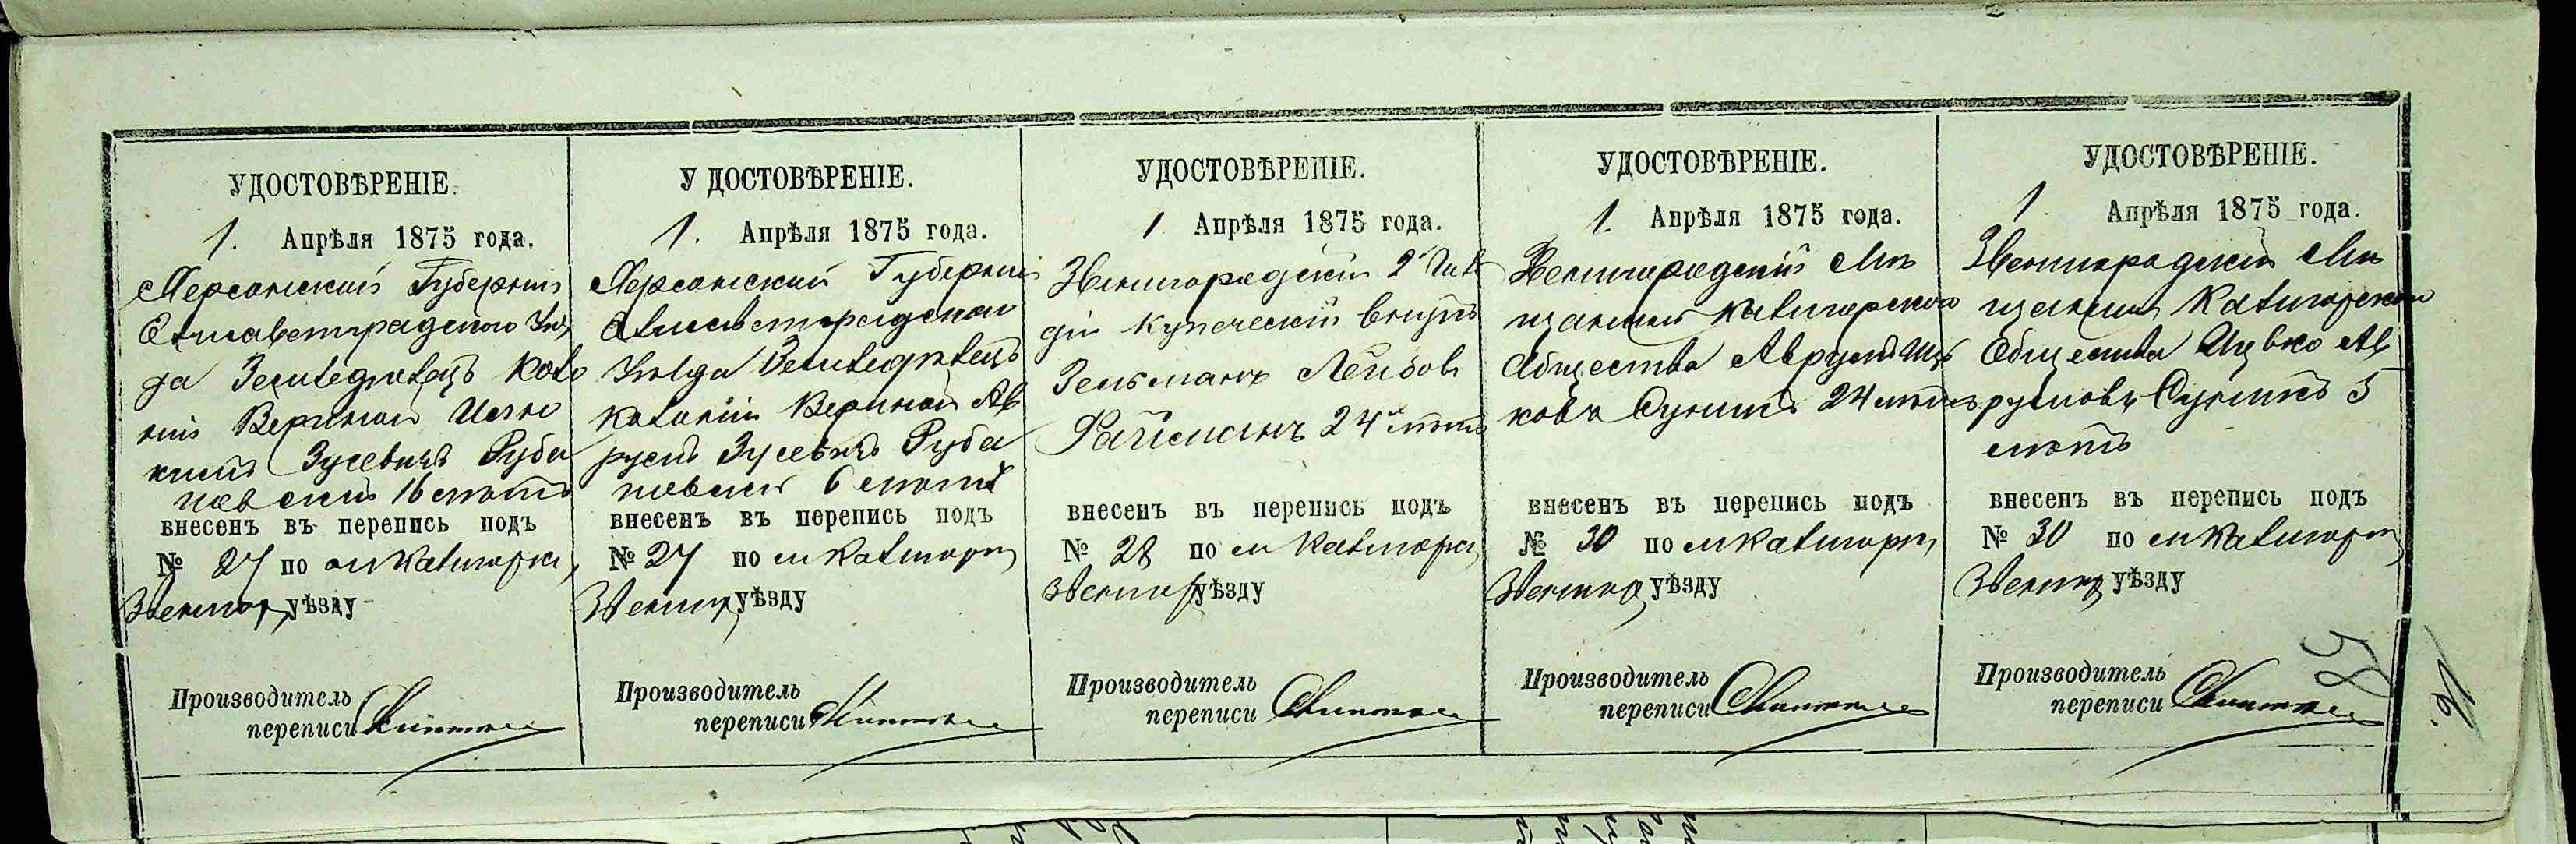 УДОСТОВѢРЕНІЕ.
1. Апрѣля 1875 года.
Херсонской Губерніи
Елисаветградскаго Уѣз
да Земледѣлецъ Коло
ніи
Зусевичъ Руба
16 лѣтъ
внесенъ въ перепись подъ
№ 27 по м Калигорк,
Звенигор, уѣзду
Производитель
переписи
УДОСТОВѢРЕНІЕ.
1. Апрѣля 1875 года.
Херсонской Губерніи
Елисаветградскаго
Уѣзда Земледѣлецъ
Колоніи Ав
румъ Зусевичъ Руба
6 лѣтъ
внесенъ въ перепись подъ
№ 27 по м Калигорк,
Звениг, уѣзду
Производитель
переписи
УДОСТОВѢРЕНІЕ.
1 Апрѣля 1875 года.
Звенигородскій 2й Гиль
діи Купеческій внукъ
Зельманъ Лейбовъ
24 лѣтъ
внесенъ въ перепись подъ
№ 28 по м Калигорк,
Звенигор уѣзду
Производитель
переписи
УДОСТОВѢРЕНІЕ.
1. Апрѣля 1875 года.
Звенигородскій Мѣ
щанинъ Калигорскаго
Общества Аврумъ Иц
ковъ 24 лѣтъ
внесенъ въ перепись подъ
№ 30 по м Калигорк,
Звениг, уѣзду
Производитель
переписи
УДОСТОВѢРЕНІЕ.
1. Апрѣля 1875 года.
Звенигородскій Мѣ
щанинъ Калигорскаго
Общества Ицько Ав
румовъ 5
лѣтъ
внесенъ въ перепись подъ
№ 30 по м Калигорк,
Звениг, уѣзду
Производитель
переписи